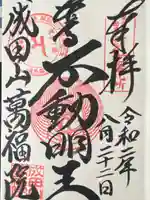 奉拝
令和二年
八月二十二日
不動明王
成田山萬福院